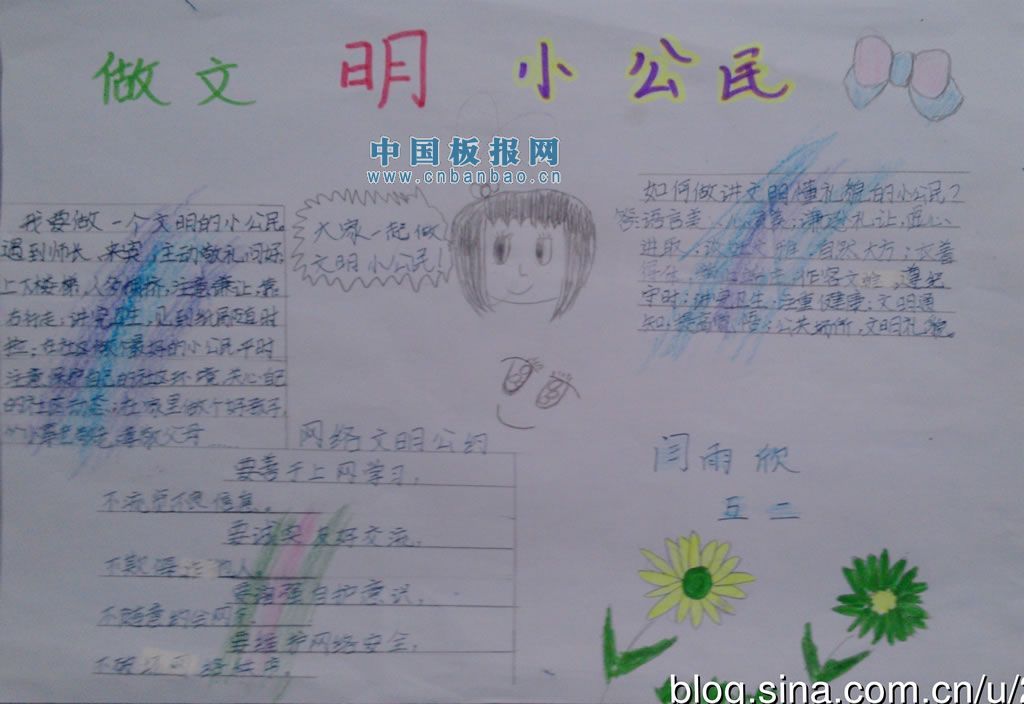 做文明小公民
中国板报网
www.cnbanbao.cn
我要做一个文明的小公民
遇到师长、来宾,主动敬礼问好
上下楼梯,人多拥挤,注意谦让,靠
右行走;讲究卫生,见到纸屑随时
捡;在社区做个最好的小公民平时
注意保护自己的社区环境,关心自己
的社区动态;在家里做个好孩子,
尊敬父母……
大家一起做
文明小公民!
如何做讲文明懂礼貌的小公民?
答:语言美,心灵美;谦逊礼让,虚心
进取;谈吐文雅,自然大方;衣善
得体,作客文明,遵纪
守时;讲究卫生,注重健康;文明通
知,提高觉悟;公共场所,文明礼貌。
网络文明公约
要善于上网学习,
不浏览不良信息。
要诚实友好交流,
不欺侮他人。
要增强自护意识,
不随意约会网友。
要维护网络安全,
不破网络秩序。
闫雨欣
五二
blog.sina.com.cn/u/2